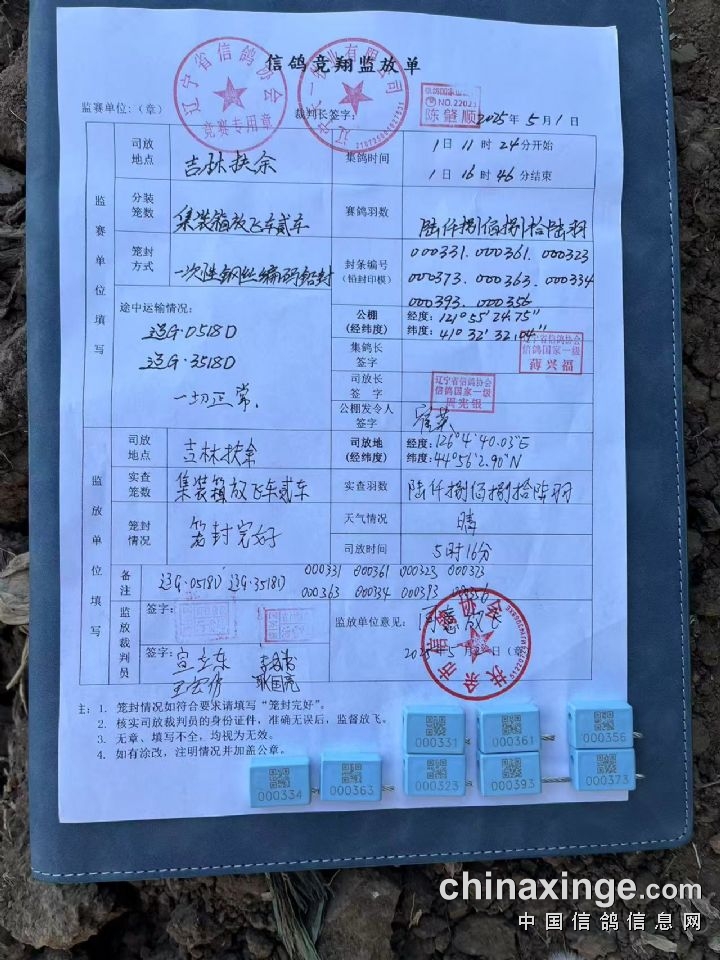 信鸽竞翔监放单
辽宁省信鸽协会
竞赛专用章
监赛单位:(章)
裁判长签字:
信鸽国家
陈肇顺
2025年5月1日
监赛单位填写
司放地点
吉林扶余
集鸽时间
1日11时24分开始
1日16时46分结束
分装笼数
集装箱放飞车贰车
赛鸽羽数
陆仟捌佰捌拾陆羽
笼封方式
一次性钢丝编码铅封
封条编号
(铅封印模)
000331.000361.000323
000373.000363.000334
000393.000356
途中运输情况:
辽G·0518D
辽G·3518D
一切正常.
公棚
(经纬度)
经度:121°55′24.75″
纬度:41°32′32.04″
集鸽长
签字
辽宁省信鸽协会
信鸽国家一级
薄兴福
司放长
签字
辽宁省信鸽协会
信鸽国家一级
周光银
公棚发令人
签字
监放单位填写
司放地点
吉林扶余
司放地
(经纬度)
经度:126°4′40.03″E
纬度:44°56′2.90″N
实查笼数
集装箱放飞车贰车
实查羽数
陆仟捌佰捌拾陆羽
笼封情况
笼封完好
天气情况
晴
司放时间
5时16分
备注
辽G·0518D 辽G·3518D
000331 000361 000323 000373
000363 000334 000393 000356
监放裁判员
签字:
签字:
监放单位意见:
同意放飞
扶余市信鸽协会
(章)
注:1. 笼封情况如符合要求请填写“笼封完好”。
2. 核实司放裁判员的身份证件,准确无误后,监督放飞。
3. 无章、填写不全,均视为无效。
4. 如有涂改,注明情况并加盖公章。
000331
000361
000356
000334
000363
000323
000393
000373
chinaxinge.com
中国信鸽信息网